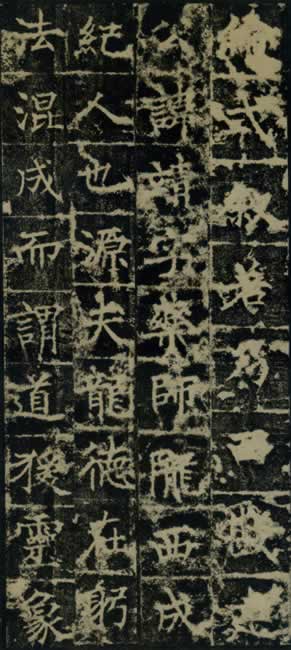 倫式敘
公諱靖字藥師隴西成
紀人也源夫龍德在躬
去混成而謂道猨靈象